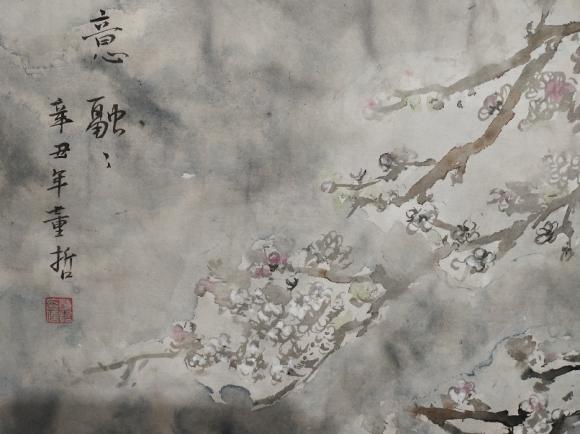 意融〻
辛丑年董哲